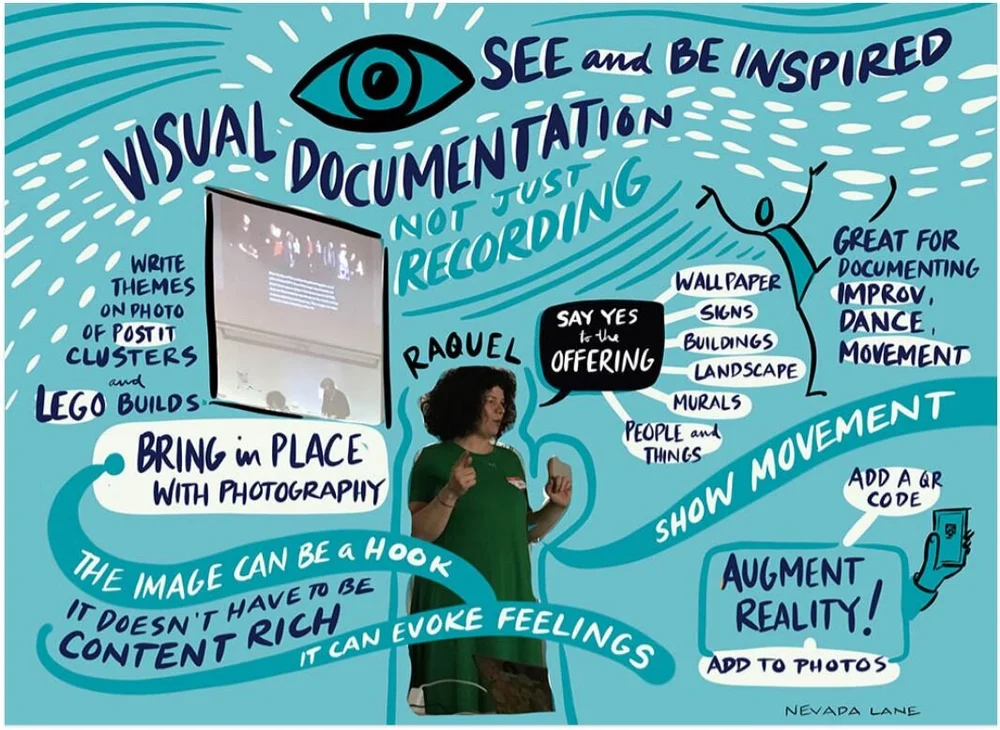 SEE and BE INSPIRED
VISUAL DOCUMENTATION
NOT JUST
RECORDING
WRITE
THEMES
ON PHOTO
OF POST IT
CLUSTERS
and
LEGO BUILDS
RAQUEL
SAY YES
to the
OFFERING
WALLPAPER
SIGNS
BUILDINGS
LANDSCAPE
MURALS
PEOPLE and
THINGS
GREAT FOR
DOCUMENTING
IMPROV,
DANCE,
MOVEMENT
BRING in PLACE
WITH PHOTOGRAPHY
THE IMAGE CAN BE a HOOK
IT DOESN'T HAVE TO BE
CONTENT RICH
IT CAN EVOKE FEELINGS
SHOW MOVEMENT
ADD A QR
CODE
AUGMENT
REALITY!
ADD TO PHOTOS
NEVADA LANE